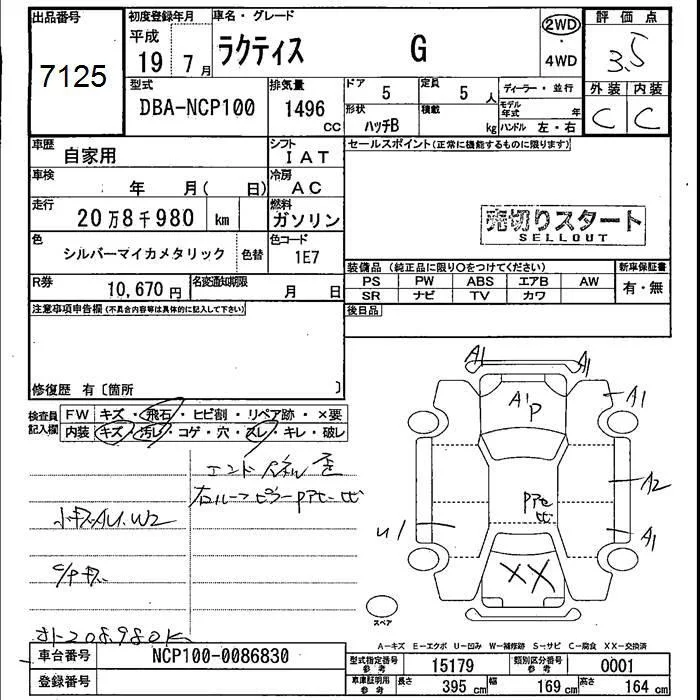 出品番号 初度登録年月 車名・グレード 2WD ・ 4WD 評価点
7125 平成 19 7月 ラクティス G 3.5
型式 DBA-NCP100 排気量 1496 cc ドア 5 定員 5人 ディーラー・並行 外装 内装
形状 ハッチB 積載 kg モデル年式 年 ハンドル 左・右 C C
車歴 自家用 シフト IAT セールスポイント(正常に機能するものに限ります)
車検 年 月( 日) 冷房 AC
走行 20万8千980 km 燃料 ガソリン 売切りスタート
SELLOUT
色 シルバーマイカメタリック 色替 色コード 1E7
装備品 (純正品に限り○をつけてください) 新車保証書
PS PW ABS エアB AW 有・無
SR ナビ TV カワ
R券 10,670円 名変通知期限 月 日
後日品
注意事項申告欄(不具合内容等は具体的に記入して下さい)
修復歴 有〔箇所 〕
検査員記入欄 FW キズ・飛石・ヒビ割・リペア跡・×要
内装 キズ・汚レ・コゲ・穴・スレ・キレ・破レ
エンドパネル歪
右ルーフピラーPアセ一比
小キズAU.W2
オト208,980K
A1
A1
A1
A1P
A2
U1
A1
XX
スペア
A-キズ E-エクボ U-凹み W-補修跡 S-サビ C-腐食 XX-交換済
車台番号 NCP100-0086830
登録番号
型式指定番号参考 15179 類別区分番号参考 0001
車庫証明用参考 長さ 395cm 幅 169cm 高さ 164cm